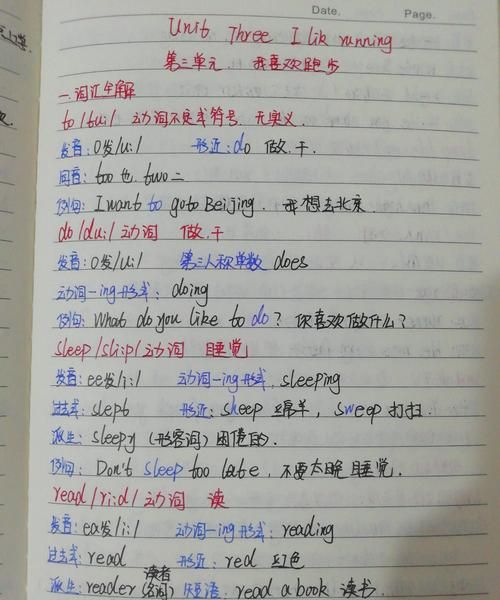 Date.
Page.
Unit Three I lik running
第三单元. 我喜欢跑步
一.词汇全解
to /tu:/ 动词不定式符号. 无实义.
发音:O发/u:/ 形近:do 做.干.
同音:too也. two二
例句:I want to go to Beijing. 我想去北京.
do /du:/ 动词 做.干
发音:O发/u:/ 第三人称单数 does
动词-ing形式:doing
例句:What do you like to do? 你喜欢做什么?
sleep /sli:p/ 动词 睡觉
发音:ee发/i:/ 动词-ing形式.sleeping
过去式:slept 形近:sheep 绵羊, sweep 打扫.
派生:sleepy (形容词)困倦的.
例句:Don't sleep too late, 不要太晚睡觉.
read /ri:d/ 动词 读
发音:ea发/i:/ 动词-ing形式:reading
过去式:read 形近:red 红色
派生:reader 读者(名词) 短语:read a book 读书.